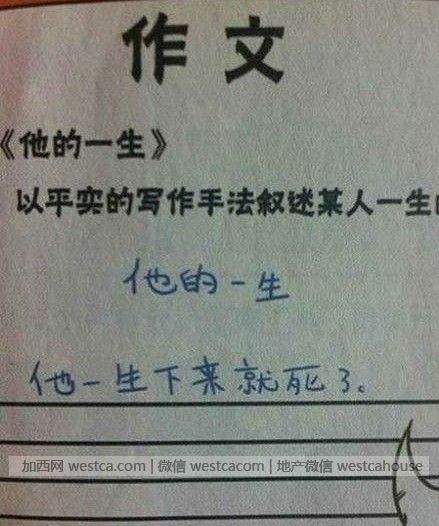 作文
《他的一生》
以平实的写作手法叙述某人一生
他的一生
他一生下来就死了。
加西网 westca.com | 微信 westcacom | 地产微信 westcahouse